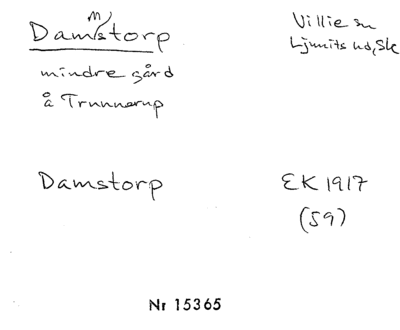 Dammstorp
mindre gård
å Trunnerup
Villie sn
Ljunits hd, Sk
Damstorp
EK 1917
(59)
Nr 15365